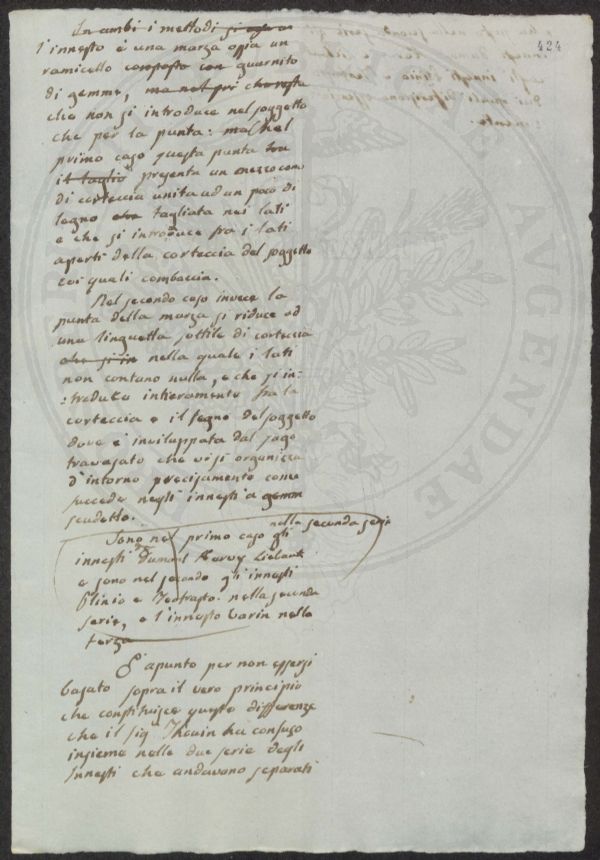 424
In ambi i metodi si usa
l'innesto è una marza ossia un
ramicello composto con guarnito
di gemme, ma nel pri che resta
che non si introduce nel soggetto
che per la punta: ma nel
primo caso questa punta
il taglio presenta un mezzo cono
di corteccia unita ad un poco di
legno tagliata nei lati
e che si introduce fra i lati
aperti della corteccia del soggetto
coi quali combaccia.
Nel secondo caso invece la
punta della marza si riduce ad
una linguetta sottile di corteccia
che si in nella quale i lati
non contano nulla, e che si in-
:troduce intieramente fra la
corteccia e il legno del soggetto
dove è inviluppata dal sugo
travasato che vi si organizza
d'intorno precisamente come
succede negli innesti a gemm
scudetto.
nella seconda serie
Sono nel primo caso gli
innesti Dumont Harvy Liebaut
e sono nel secondo gli innesti
Plinio e Teofrasto. nella seconda
serie, e l'innesto Varin nella
terza
È apunto per non essersi
basato sopra il vero principio
che constituisce queste differenze
che il sig. Thouin ha confuso
insieme nelle due serie degli
Innesti che andavano separati